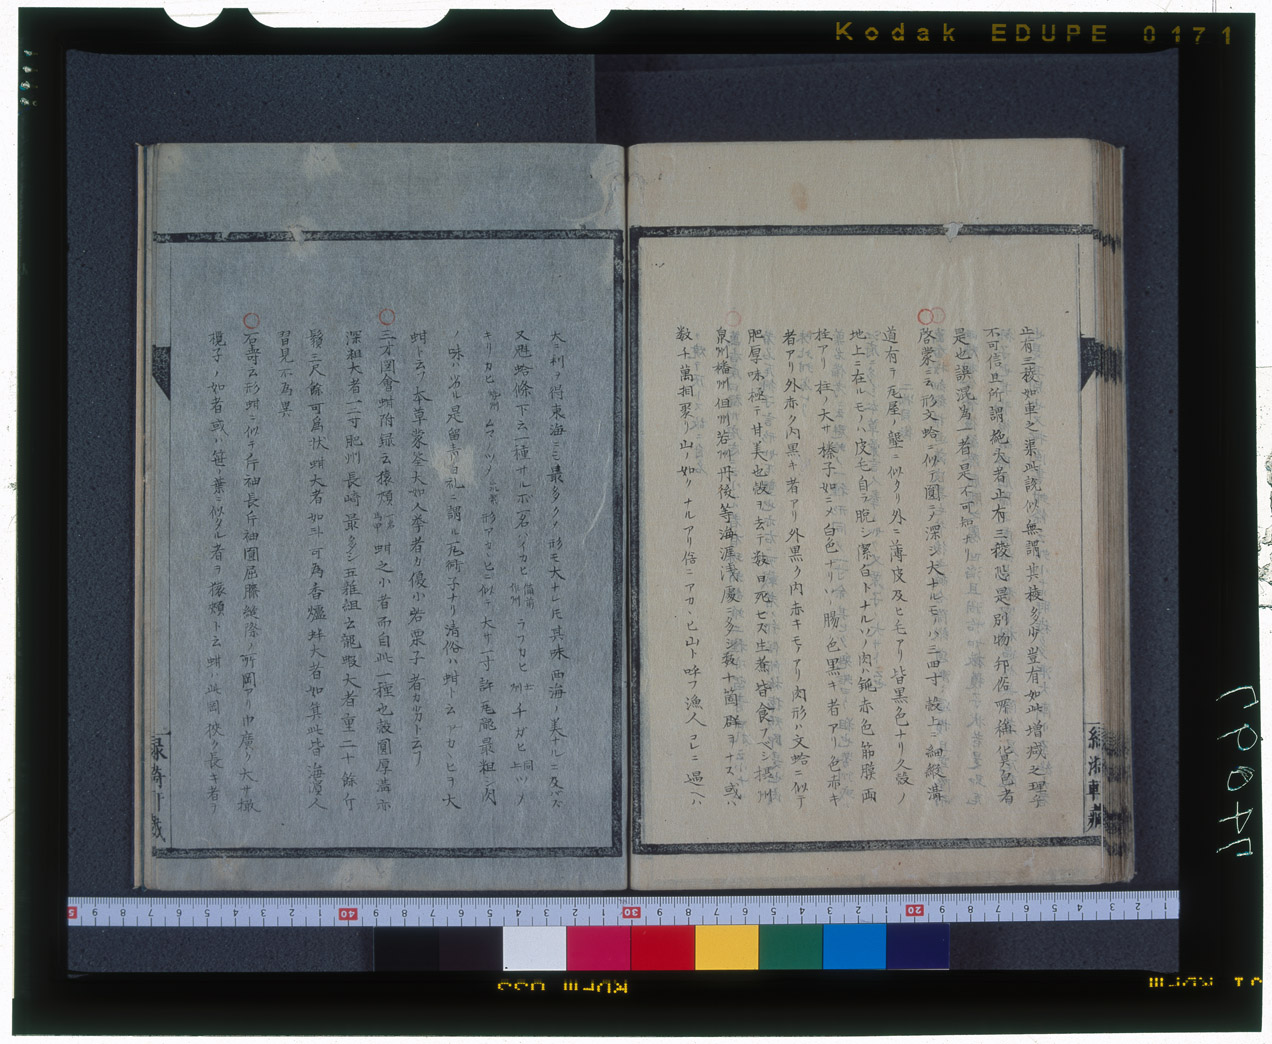 Kodak EDUPE 0171
止有三稜如車之渠此説似無謂其稜多少豈有如此増減之理乎
不可信且所謂施大者止有三稜恐是別物邦俗所稱貨色者
是也誤混為一者是不可知ナリ
啓蒙ニ云形文蛤ニ似テ圓ニメ深シ大ナルモノハ三四寸殻上ニ細縦溝
道有テ瓦屋ノ壟ニ似タリ外ニ薄皮及ヒ毛アリ皆黒色ナリ久殻ノ
地上ニ在ルモノハ皮毛自ラ脱シ潔白トナルソノ肉ハ純赤色筋膜両
柱アリ柱ノ大サ榛子如ニメ白色ナリ腸色黒キ者アリ色赤キ
者アリ外赤ク内黒キ者アリ外黒ク内赤キモアリ肉形ハ文蛤ニ似テ
肥厚味極テ甘美也殻ヲ去テ数日死セス生煮皆食フヘシ摂州
泉州播州但州若州丹後等海涯浅處ニ多シ数十箇群ヲナス或ハ
数千萬相聚リ山ノ如クナルアリ俗ニアカヽヒ山ト呼フ漁人コレニ遇ヘハ
大ニ利ヲ得東海ニモ最多クメ形モ大ナレ𪜈其味西海ノ美ナルニ及ハス
又魁蛤條下云一種サルボ一名ハイカヒ備前
キリカヒ ムマノツメ 形アカヽヒニ似テ大サ一寸許瓦壟最粗シ肉
ノ味ハ劣ル是留青日札ニ謂ル瓦衖子ナリ清俗ハ蚶ト云アカヽヒヲ大
蚶ト云フ本草蒙筌大如人拳者力優小若栗子者力劣ト云フ
三才圖會蚶附録云猿頬 蚶之小者而自此一種也殻圓厚溝亦
深粗大者一二寸肥州長崎最多シ五雜俎云龍蝦大者重二十餘斤
鬚三尺餘可為杖蚶大者如斗可為香爐蚌大者如箕此皆海濱人
習見不為異
石壽云形蚶ニ似テ斤袖長斤袖圓屈膝縫際ノ所圓アリ巾廣ク大サ橄
欖子ノ如者或ハ笹ノ葉ニ似タル者ヲ猿頬ト云蚶ハ此圓狭ク長キ者ヲ
緑漪軒蔵